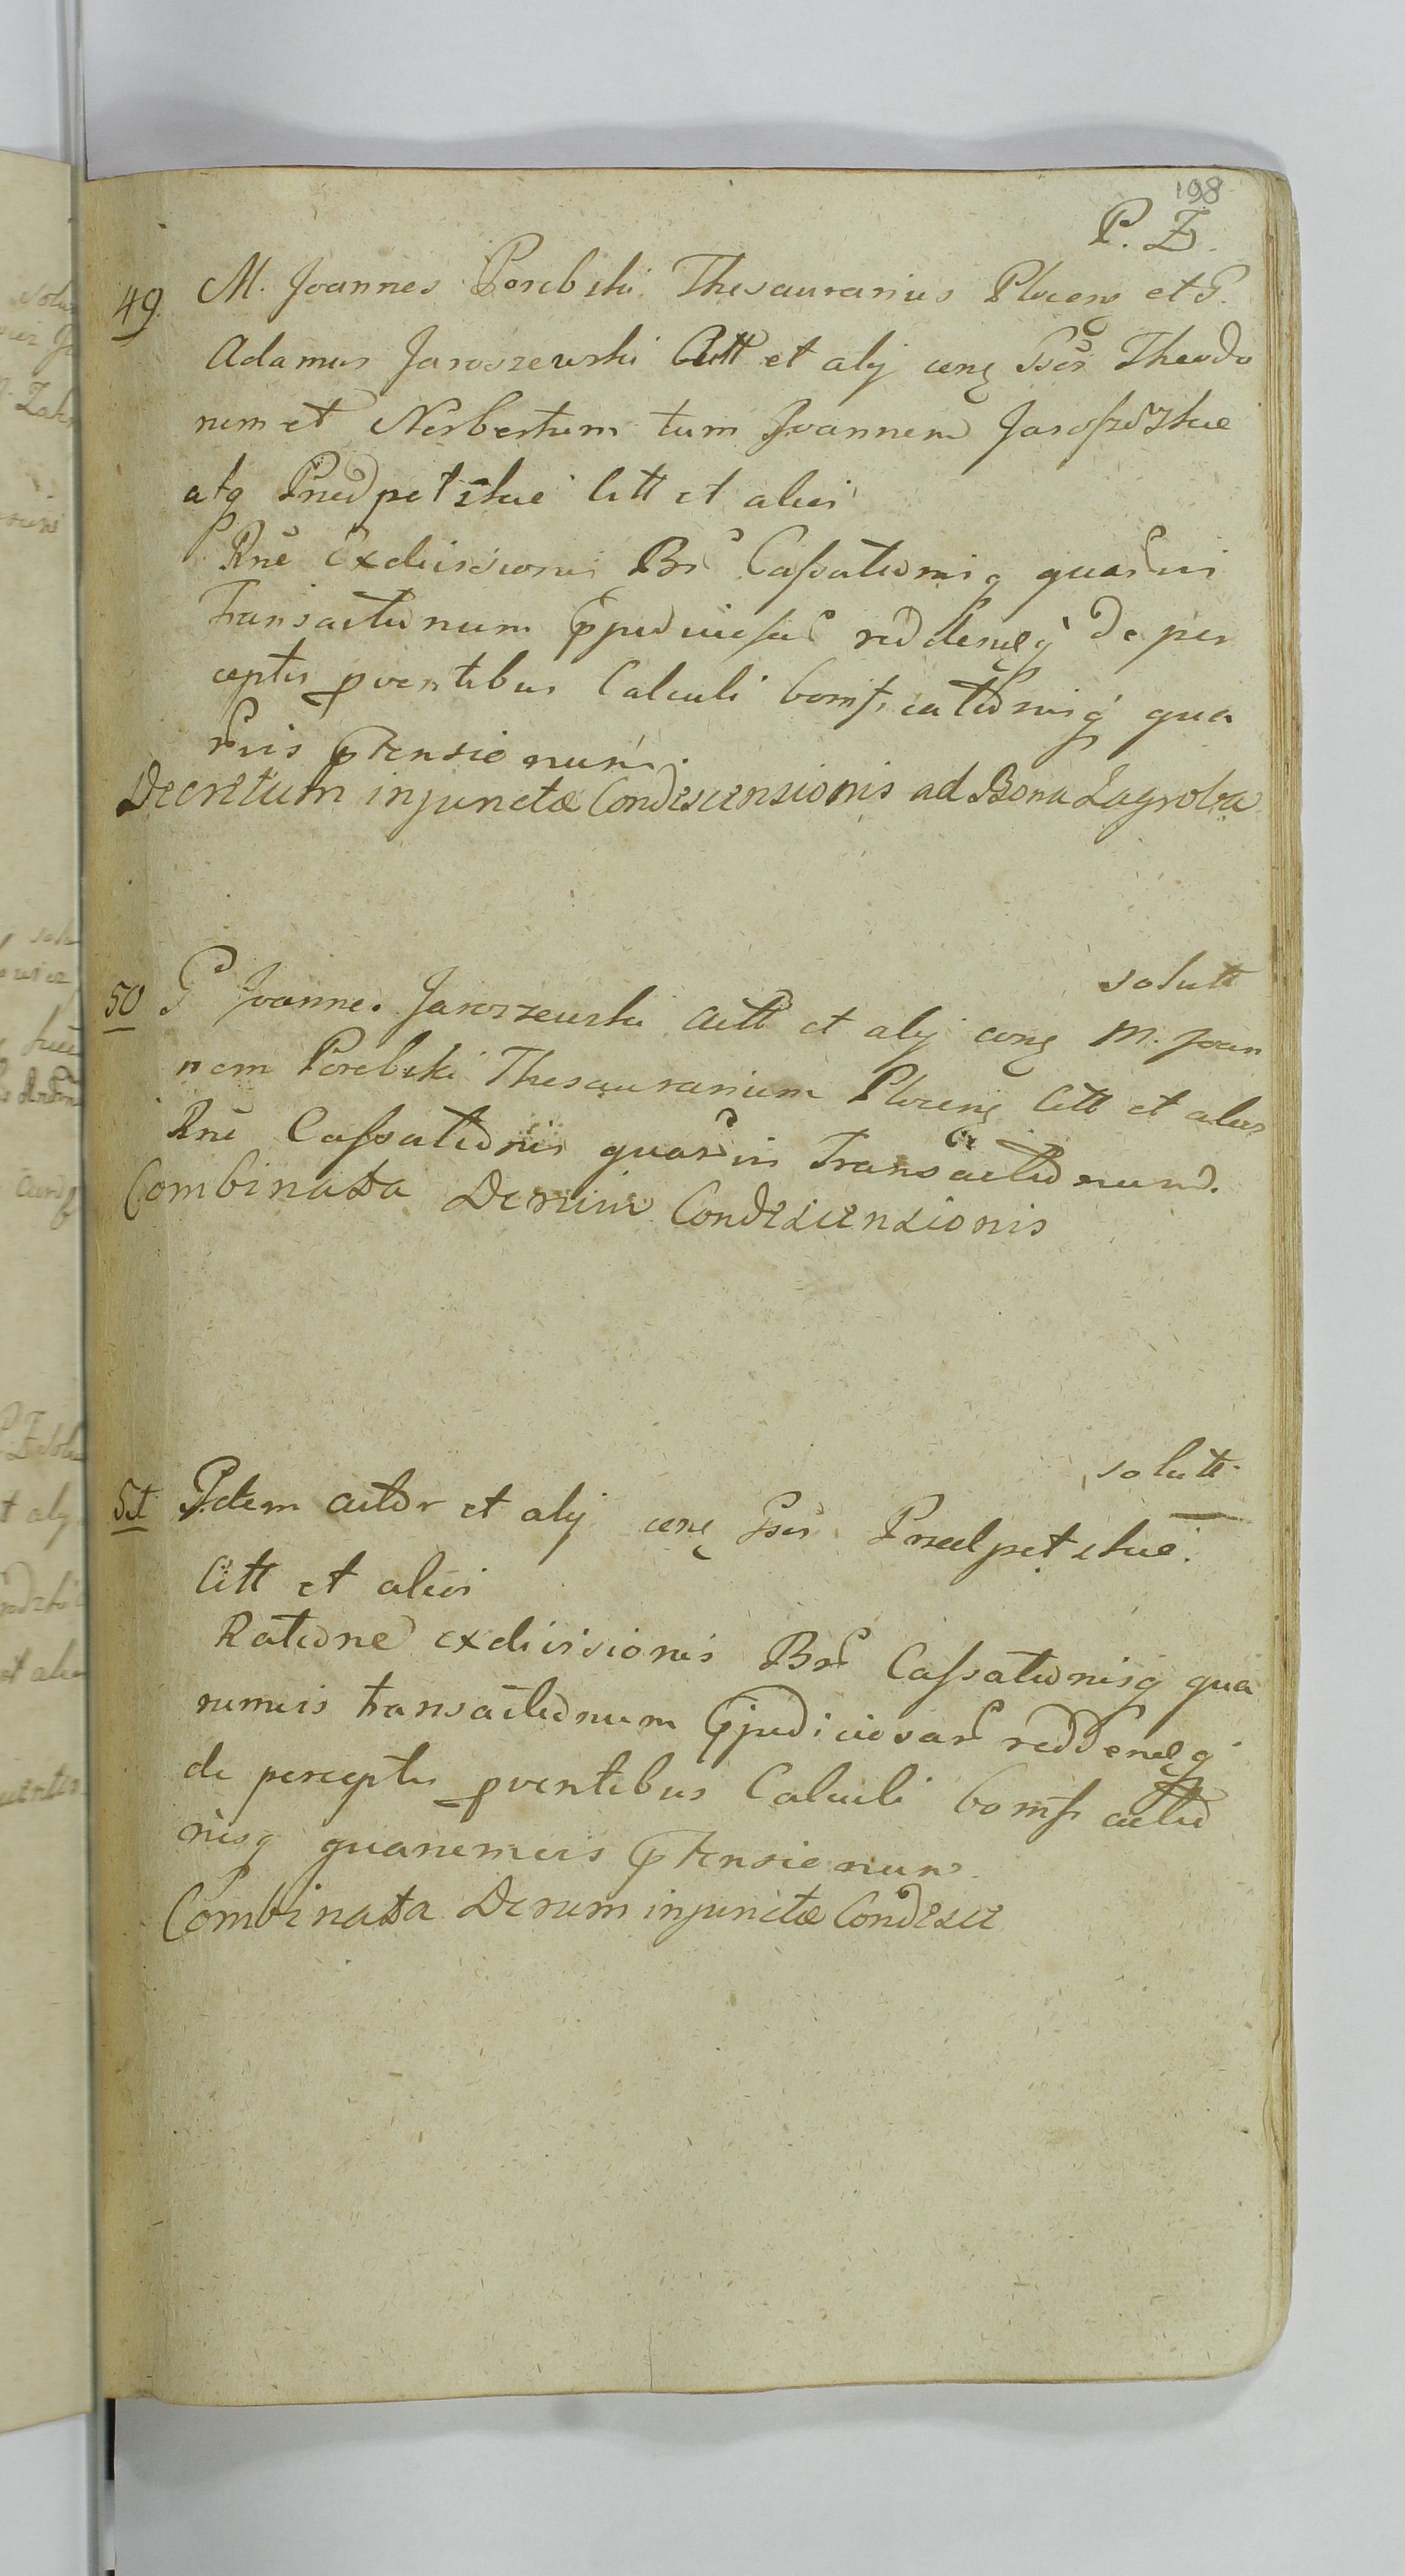 198
P. Z.
49. M. Joannes Porebski Thesaurarius Plocens et G.
Adamus Jaroszewski Citt et alij cens Gsos Theodo
rum et Norbertum tum Joannem
atq Przedpełskie Citt et alios
Rne Exdivisionis Br Cassationisq quarvis
Transactionum pjudiciosar reddendq de per
ceptis pventibus Calculi bonificationisq qua
rvis ptensionum.
Decretum injunctæ Condescensionis ad Bona Zagroba
solutt
50 G Joannes Jaroszewski Citt et alij cons M. Joan
nem Porebski Thesaurarium Plocens Citt et alios
Rne Cassationis quarvis Transactionum.
Combinata Condescensionis
solutt
51 Idem Actor et alij cens Gsos Przedpełskie.
Citt et alios
Ratione exdivisionis Bor Cassationisq qua
rumvis transactionum pjudiciosar reddendq
de perceptis pventibus Calculi bonificatio
nisq quarumvis ptensionum
Combinata injunctæ Condesce